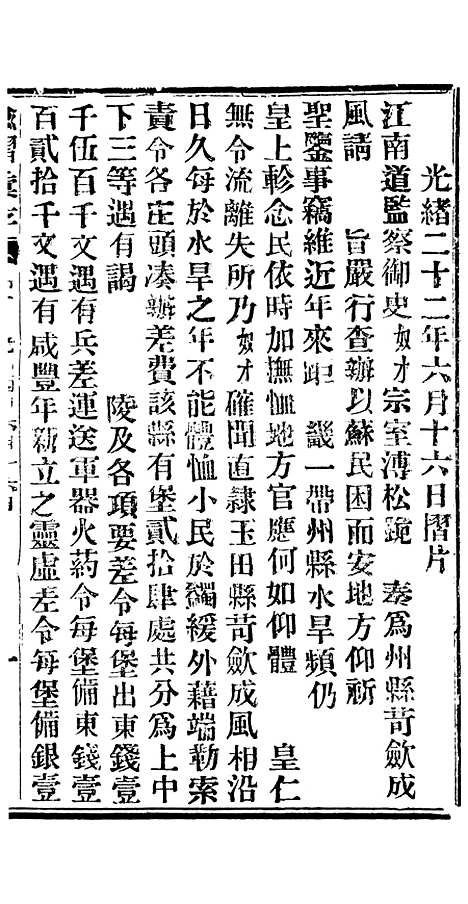 光緒二十二年六月十六日摺片
江南道監察御史奴才宗室溥松跪 奏爲州縣苛斂成
風請 旨嚴行查辦以蘇民困而安地方仰祈
聖鑒事竊維近年來距 畿一帶州縣水旱頻仍
皇上軫念民依時加撫恤地方官應何如仰體 皇仁
無令流離失所乃奴才確聞直隸玉田縣苛斂成風相沿
日久每於水旱之年不能體恤小民於蠲緩外藉端勒索
責令各庄頭湊辦差費該縣有堡貳拾肆處共分爲上中
下三等遇有謁 陵及各項要差令每堡出東錢壹
千伍百千文遇有兵差運送軍器火葯令每堡備東錢壹
百貳拾千文遇有咸豐年新立之靈虛差令每堡備銀壹